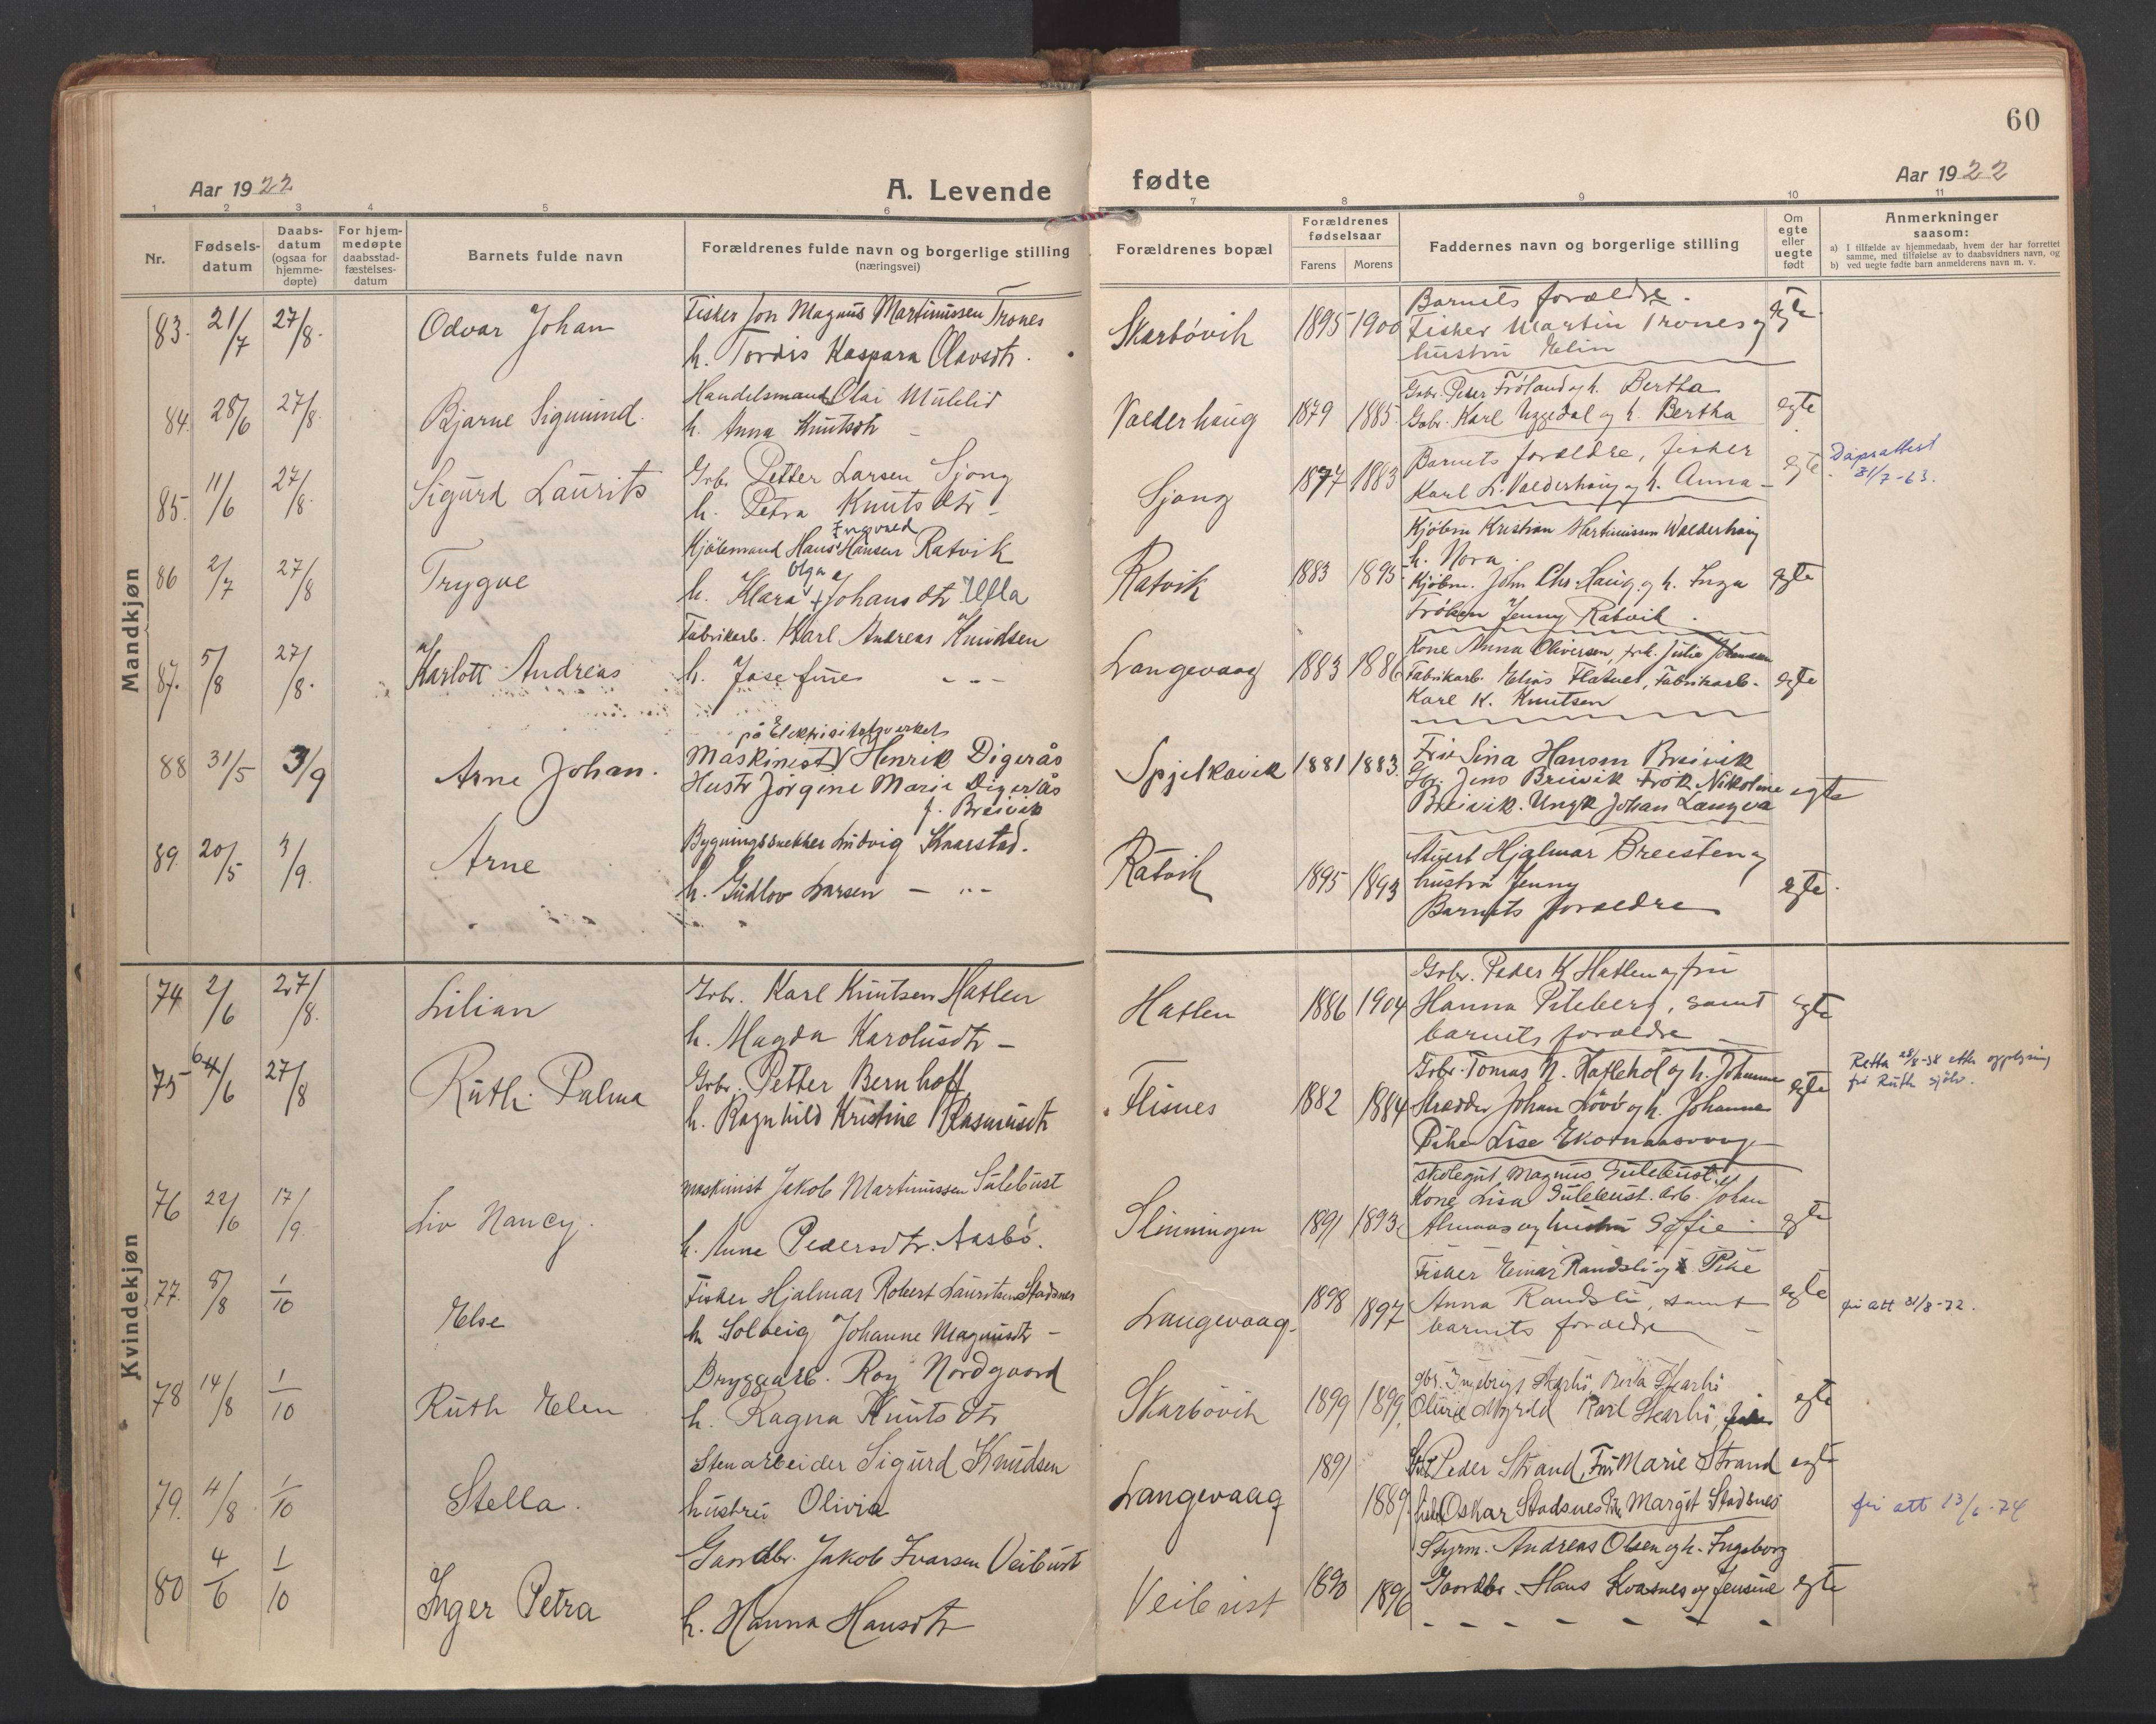 60
Aar 1922
A. Levende fødte
Aar 1922
1 2 3 4 5 6 7 8 9 10 11
Nr.
Fødsels-
datum
Daabs-
datum
(ogsaa for
hjemme-
døpte)
For hjem-
medøpte
daabsstad-
fæstelses-
datum
Barnets fulde navn
Forældrenes fulde navn og borgerlige stilling
(næringsvei)
Forældrenes bopæl
Forældrenes
fødselsaar
Farens Morens
Faddernes navn og borgerlige stilling
Om
egte
eller
uegte
født
Anmerkninger
saasom:
a) I tilfælde av hjemmedaab, hvem der har forrettet
samme, med tilføielse av to daabsvidners navn, og
b) ved uegte fødte barn anmelderens navn m. v.
Mandkjøn
83. 21/7 27/8. Odvar Johan
Fisker Jon Magnus Martinussen Trones
h. Tordis Kaspara Olavsdtr.
Skarbövik 1895 1900
Barnets forældre.
Fisker Martin Trones og
hustru Elin
egte
84. 28/6 27/8. Bjarne Sigmund.
Handelsmand Olai Mulelid
h. Anna Knutsdtr –
Valderhaug 1879 1885.
Gbr. Peder Fröland og h. Bertha
Gbr. Karl Uggedal og h. Bertha
egte
85. 11/6 27/8. Sigurd Laurits
Gbr. Petter Larsen Sjong
h. Petra Knutsdtr –
Sjong 1877 1883
Barnets forældre, fisker
Karl L. Valderhaug og h. Anna –
egte
Dåpsattest
31/7-63.
86 2/7 27/8 Trygve
Ingvald
Kjöbmand Hans Hansen Ratvik
Olga
h. Klara Johansdtr Ulla
Ratvik 1883 1895
Kjöbm Kristian Martinussen Walderhaug
h. Nora.
Kjöbm. John Chr. Haug og h. Inga
Fröken Jenny Ratvik.
egte
87. 5/8 27/8. Karlott Andreas
Fabrikarb. Karl Andreas Knudsen
h. Josefine – – –
Langevaag 1883 1886
Kone Anna Oliversen, frk. Julie Johansen
Fabrikarb. Elias Flatnes, Fabrikarb.
Karl K. Knutsen
egte
88 31/5 3/9 Arne Johan.
på Elektrisitetsverket
Maskinest Henrik Digerås
Hustr Jörgine Marie Digerås
f. Breivik
Spjelkavik 1881 1883.
Frue Sina Hansen Breivik
Gbr. Jens Breivik frök. Nikoline
Breivik. Ungk Johan Langva
egte
89. 20/5 3/9. Arne
Bygningssnekker Ludvig Skaarstad.
h. Gudlov Larsen – „ –
Ratvik 1895 1893
Stuert Hjalmar Breisten og
hustru Jenny
Barnets forældre
egte.
Kvindekjøn
74 2/6 27/8. Lilian
Gbr. Karl Knutsen Hatlen
h. Magda Karolusdtr –
Hatlen 1886 1904
Gbr. Peder K. Hatlen og fru
Hanna Pileberg, samt
barnets forældre –
egte
75 6 4/6 27/8 Ruth Palma
Gbr. Petter Bernhoff
h. Ragnhild Kristine Rasmusdtr
Flisnes 1882 1884
Gbr. Tomas N. Hatlehol og h. Johanne
Skredder Johan Lövö og h. Johanne
Pike Lise Ekornaasvaag
egte
Retta 28/8-38 etter opplysning
frå Ruth sjølv.
76 22/6 17/9. Liv Nancy.
Maskinist Jakob Martinussen Sulebust
h. Anne Pedersdtr. Aasbö.
Slinningen 1891 1893.
Skolegut Magnus Sulebust.
Kone Lisa Sulebust. Arb. Johan
Almaas og hustru Sofie.
egte
77. 5/8 1/10 Else
Fisker Hjalmar Robert Lauritsen Stadsnes
h. Solveig Johanne Magnusdtr –
Langevaag. 1898 1897
Fisker Einar Randsli og Pike
Anna Randsli, samt
barnets forældre –
egte
fri att 31/8-72.
78 14/8 1/10 Ruth Elen
Bryggearb. Roy Nordgaard
h. Ragna Knutsdtr
Skarbövik 1899 1899.
gbr. Ingebrigt Skarbö, Berta Skarbö
Olivie Myrild Karl Skarbö,
egte
79. 4/8. 1/10 Stella.
Stenarbeider Sigurd Knudsen
hustru Olivia
Langevaag 1891 1889.
Peder Strand, Fru Marie Strand
fisker Oskar Stadsnes Pike Margit Stadsnes
egte
fri att 13/6-74
80 4/6 1/10 Inger Petra
Gaardbr. Jakob Ivarsen Veibust
h. Hanna Hansdtr
Veibust 1890 1896
Styrm. Andreas Olsen og h. Ingeborg
Gaardbr. Hans Kvasnes og Jensine
– – – – – – –
egte